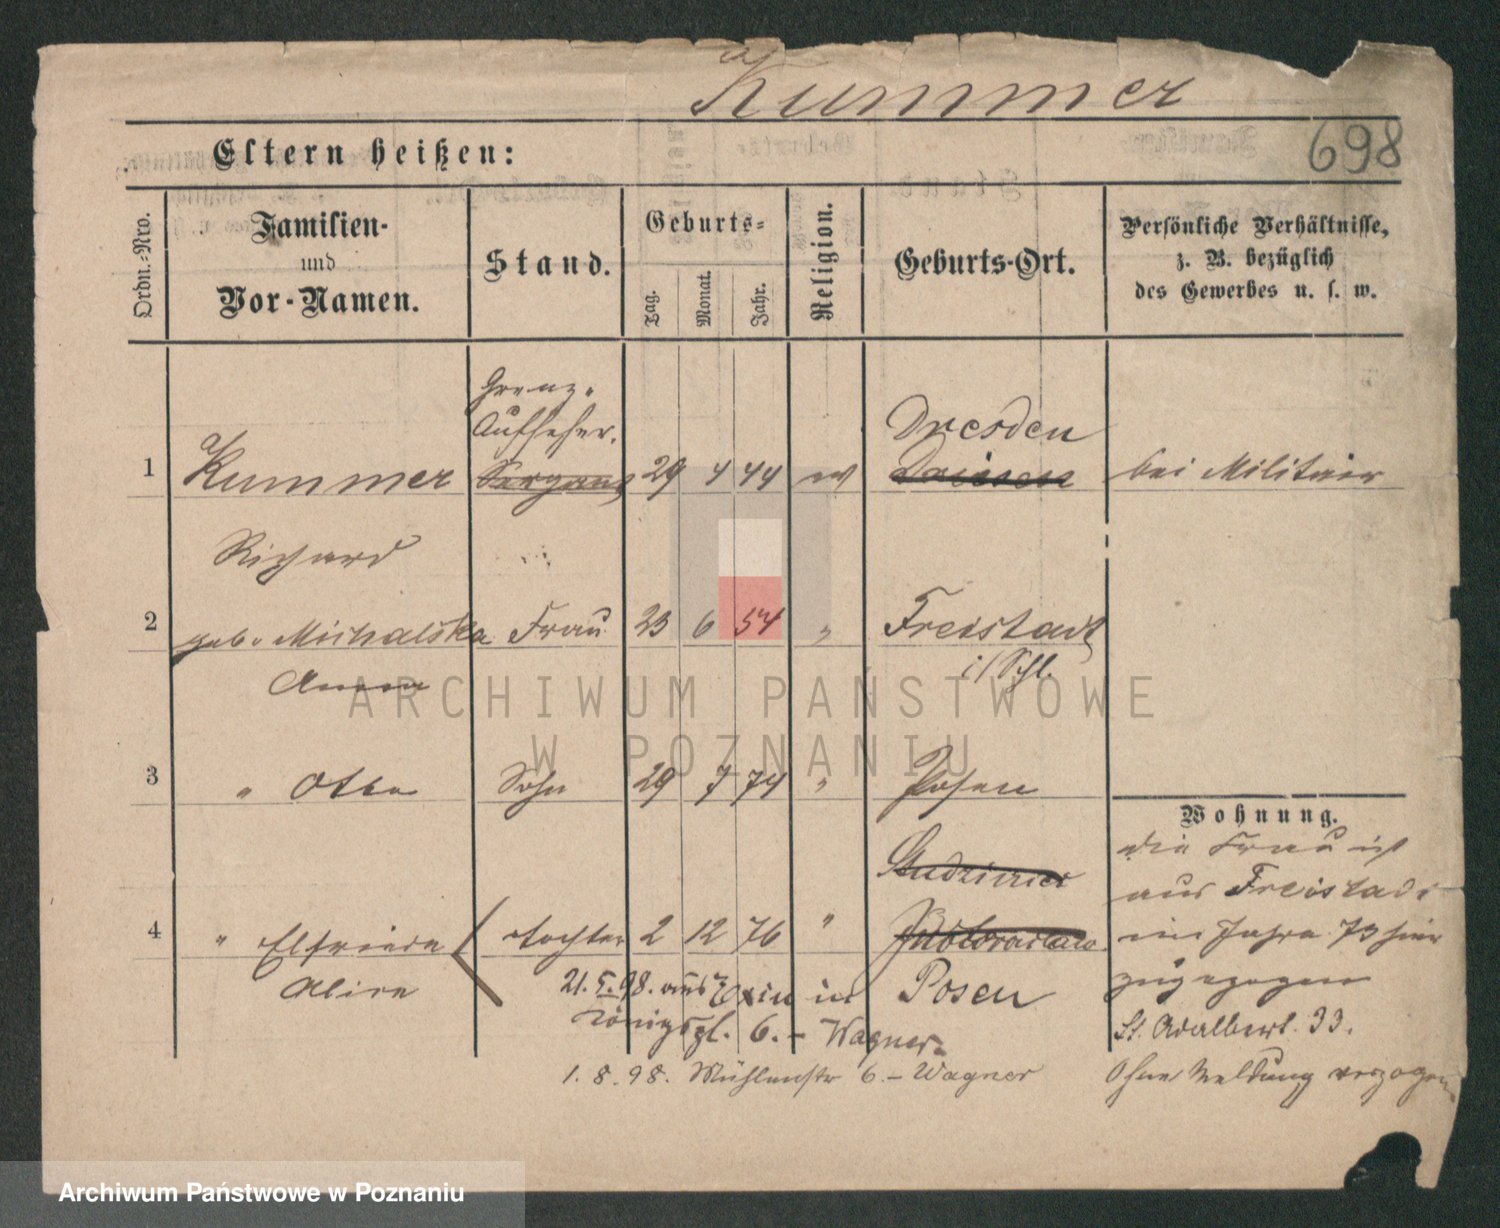 Kummer
698
Eltern heißen:
Ordn.-Nro.
Familien-
und
Vor-Namen.
Stand.
Geburts-
Tag.
Monat.
Jahr.
Religion.
Geburts-Ort.
Persönliche Verhältnisse,
z. B. bezüglich
des Gewerbes u. s. w.
Grenz-
Aufseher.
Dresden
1 Kummer 29 4 44 bei Militair
Richard
2 geb. Michalska Frau 23 6 54 " Freistadt
Anna i/Schl.
3 " Otto Sohn 29 7 74 " Posen
Wohnung.
die Frau ist
aus Freistadt
4 " Elfriede tochter 2 12 76 "
im Jahre 73 hier
Posen
zugezogen
21. 5. 98. aus Exin in
Königspl. 6. - Wagner.
St. Adalbert. 33.
1. 8. 98. Mühlenstr 6. - Wagner
Ohne Meldung verzogen
ARCHIWUM PAŃSTWOWE
W POZNANIU
Archiwum Państwowe w Poznaniu